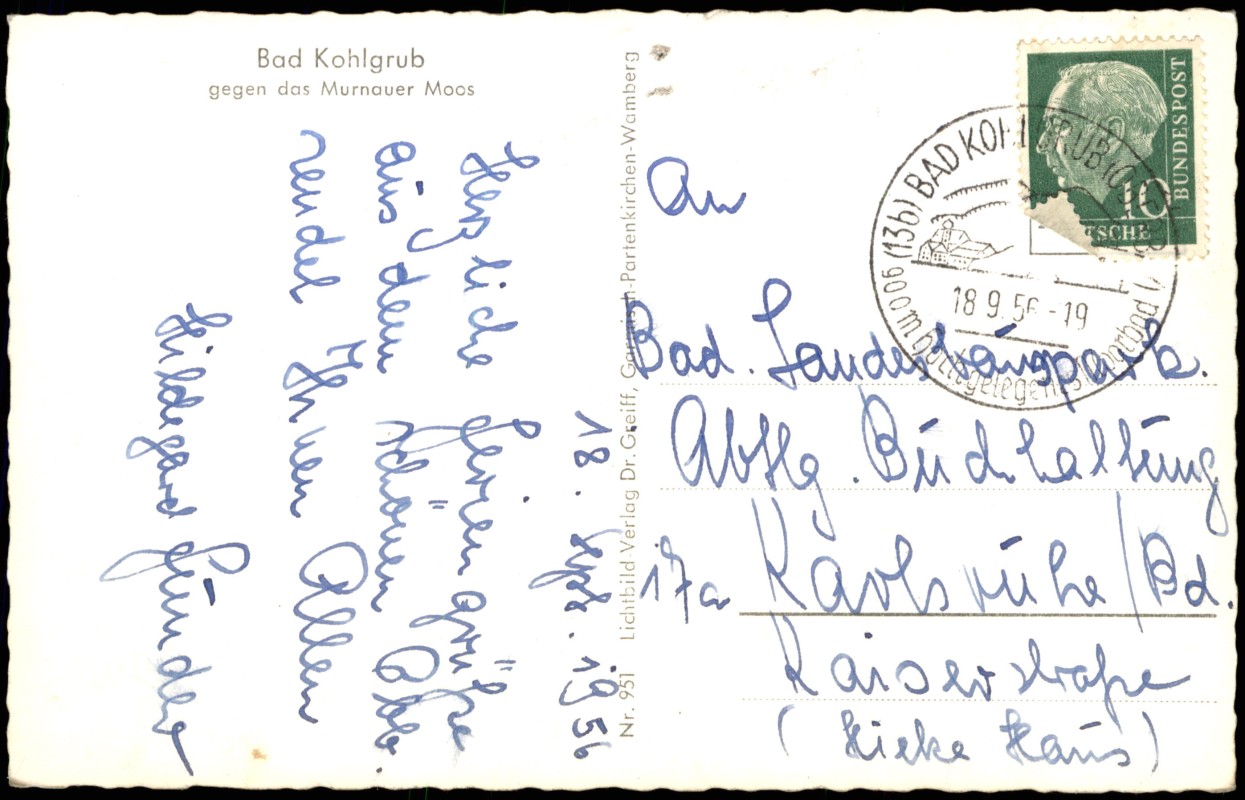 Bad Kohlgrub
gegen das Murnauer Moos
18. Spt. 1956
Herzliche Feriengrüße
aus dem schönen Obb.
sendet Ihnen Allen
Hildegard
Nr. 951 Lichtbild-Verlag Dr. Greiff, Garmisch-Partenkirchen-Wamberg
BUNDESPOST
10
TSCHE
(13b) BAD KOHLGRUB
18.9.56-19
900 m
An
Bad. Landes
Abtlg. Buchhaltung
17a Karlsruhe/Bd.
Kaiserstraße
(Hieke Haus)